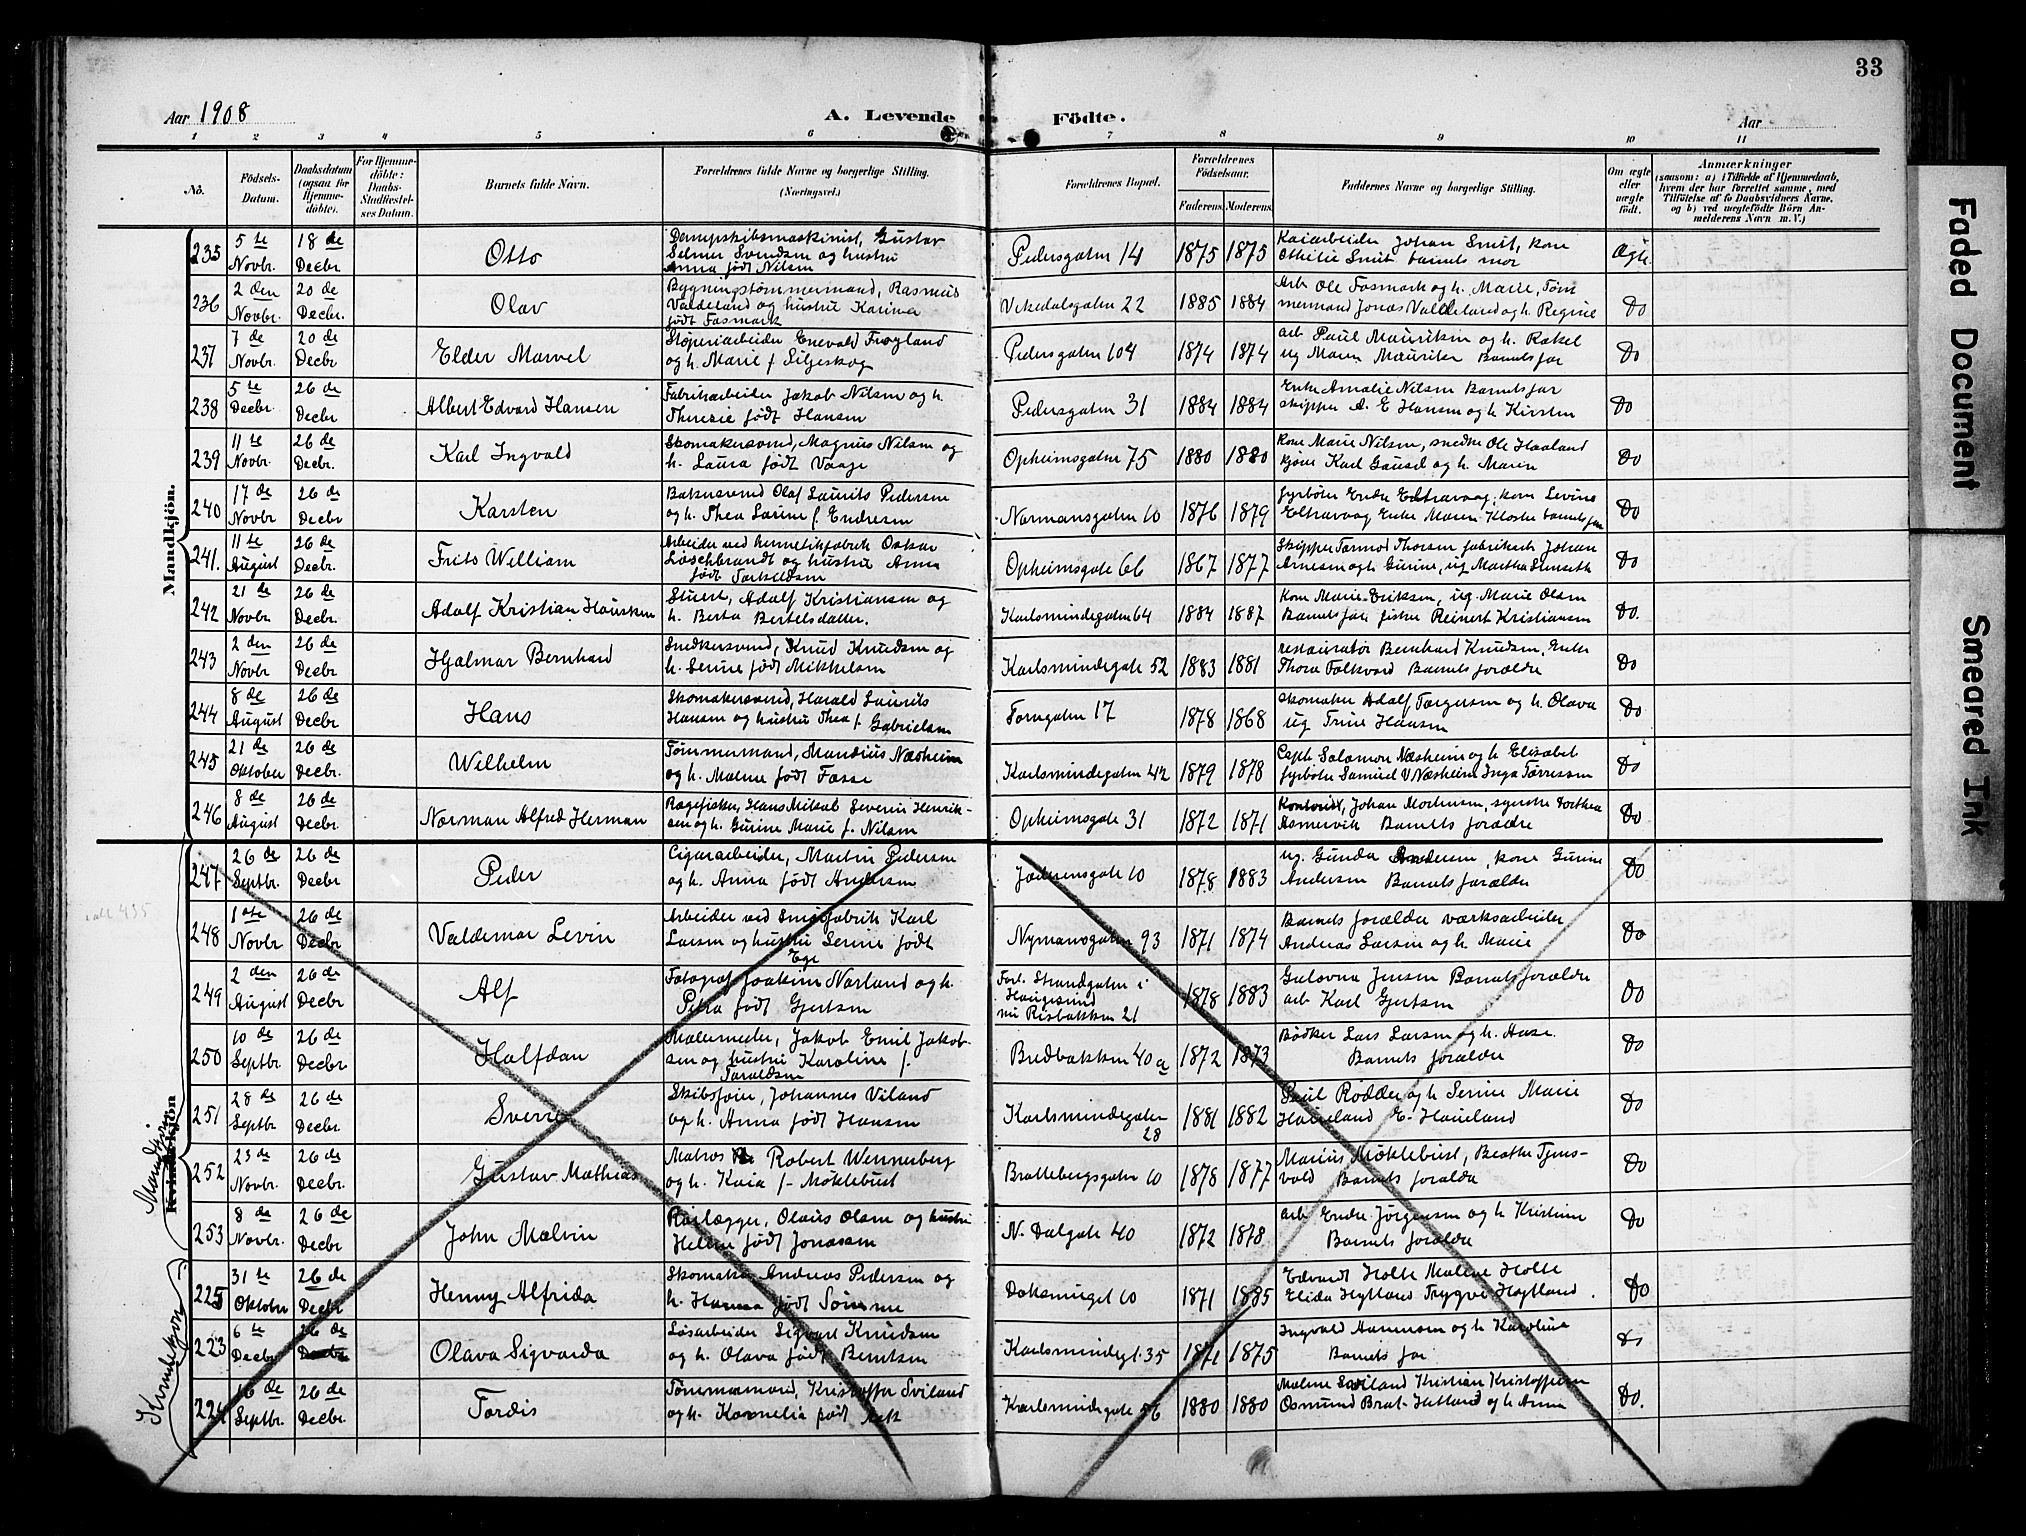 33
Aar 1908
A. Levende Födte.
Aar
1 2 3 4 5 6 7 8 9 10 11
No.
Födsels-Datum.
Daabsdatum (ogsaa for Hjemmedöbte).
For Hjemmedöbte: Daabs-Stadfæstelses Datum.
Barnets fulde Navn.
Forældrenes fulde Navne og borgerlige Stilling. (Næringsvei.)
Forældrenes Bopæl.
Forældrenes Födselsaar.
Faderens. Moderens.
Faddernes Navne og borgerlige Stilling.
Om ægte eller uægte födt.
Anmærkninger
(saasom: a) i Tilfælde af Hjemmedaab, hvem der har forrettet samme, med Tilföielse af to Daabsvidners Navne, og b) ved uægtefödte Börn Anmelderens Navn m. V.)
Mandkjön.
235 5te Novbr. 18de Decbr Otto Dampskibsmaskinist, Gustav Selmer Svendsen og hustru Anna født Nilsen Pedersgaten 14 1875 1875 Kaiarbeider Johan Smit, kone Othilie Smit barnets mor Ægte
236 2den Novbr. 20de Decbr. Olav Bygningstømmermand, Rasmus Valdeland og hustru Karine født Fasmark Vikedalsgaten 22 1885 1884 Arb Ole Fosmark og h. Marie, Tømmermand Jonas Valdeland og h. Regine Do
237 7de Novbr. 20de Decbr Elder Marvel Støperiarbeider Enevald Frøyland og h. Marie f Liljeskog Pedersgaten 104 1874 1874 arb Paul Mauritsen og h. Rakel ug Maren Mauritsen Barnets far Do
238 5te Decbr. 26de Decbr Albert Edvard Hansen Fabrikarbeider Jakob Nilsen og h. Therese født Hansen Pedersgaten 31 1884 1884 Enke Amalie Nilsen Barnets far skipper A. E Hansen og h. Kirsten Do
239 11te Novbr. 26de Decbr. Karl Ingvald Skomakersvend, Magnus Nilsen og h. Laura født Vaage Opheimsgaten 75 1880 1880 Kone Marie Nilsen, snedker Ole Haaland kjører Karl Gausel og h. Maren Do
240 17de Novbr 26de Decbr Karsten Bakersvend Olaf Laurits Pedersen og h. Thea Laurine f. Endresen Normansgaten 10 1876 1879 fyrbøter Endre Eltravaag, kone Levine Eltravaag Enke Maren Kloster barnets far Do
241. 11te August 26de Decbr. Frits William Arbeider ved hermetikfabrik Oskar Løschbrandt og hustru Anna født Torkildsen Opheimsgate 66 1867 1877 Skipper Tormod Thorsen fabrikarb Johan Arnesen og h. Gurine, ug Martha Do
242 21de Novbr 26de Decbr. Adolf Kristian Hausken Stuert, Adolf Kristiansen og h. Berta Bertelsdatter. Karlsmindegaten 64 1884 1887 Kone Marie Eriksen, ug. Marie Olsen Barnets far fisker Reinert Kristiansen Do.
243 2den Novbr 26de Decbr. Hjalmar Bernhard Snedkersvend, Knud Knudsen og h. Serine født Mikkelsen Karlsmindegate 52 1883 1881 restauratør Bernhard Knudsen, Enke Thora Falkvard Barnets forældre Do
244 8de August 26de Decbr Hans Skomakersvend, Harald Laurits Hansen og hustru Thea f. Gabrielsen Torngaten 17 1878 1868 Skomaker Adolf Torgersen og h. Olava ug Trine Hansen Do
245 21de Oktober 26de Decbr. Wilhelm Tømmermand, Mandius Næsheim og h. Malene født Fosse Karlsmindegaten 42 1879 1878 Capt. Salomon Næsheim og h. Elisabet fyrbøter Samuel V Næsheim Inga Tørressen Do
246 8de August 26de Decbr. Norman Alfred Herman Ragefisker, Hans Mikal Severin Henriksen og h. Gurine Marie f. Nilsen Opheimsgate 31 1872 1871 Kontorist, Johan Mortensen, syerske Dorthea Barnets forældre Do
Kvindekjön
Mandkjøn
i alt 435
247 26de Septbr. 26de Decbr Peder Cigararbeider, Martin Pedersen og h. Anna født Andersen Jæderensgate 10 1878 1883 ug. Gunda Andersen, kone Gurine Andersen Barnets forældre Do
248 1ste Novbr 26de Decbr Valdemar Levin Arbeider ved Smørfabrik Karl Larsen og hustru Serine født Ege Nymansgaten 93 1871 1874 Barnets forældre værksarbeider Andreas Larsen og h. Marie Do
249 2den August 26de Decbr Alf Fotograf Joakim Norland og h. Petra født Gjertsen Forl. Strandgaten i Haugesund nu Risbakken 21 1878 1883 Gulovna Jensen Barnets forældre arb Karl Gjertsen Do
250 10de Septbr. 26de Decbr Halfdan Malermester, Jakob Emil Jakobsen og hustru Karoline f. Taraldsen Bredbakken 40a 1872 1873 Bødker Lars Larsen og h. Aase. Barnets forældre Do
251 28de Septbr 26de Decbr. Sverre Skibsfører, Johannes Viland og h. Anna født Hansen Karlsmindegaten 28 1881 1882 Paul Rødder og h Serine Marie Haueland E. Haueland Do
252 23de Novbr. 26de Decbr. Gustav Mathias Matros Robert Wennerberg og h. Kaia f. Møklebust Brattebergsgaten 10 1878 1877 Marius Møklebust, Beathe Tjensvold Barnets forældre Do
253 8de Novbr. 26de Decbr John Malvin Rørlægger, Olaus Olsen og hustru Helene født Jonassen N. Dalgate 40 1872 1878 arb Endre Jørgensen og h Kristine Barnets forældre Do
Kvindekjøn
225 31te Oktober 26de Decbr Henny Alfrida Skomaker Andreas Pedersen og h. Hanna født Sømme Doksmuget 10 1871 1885 Edvardt Holte Malene Holte Elida Høyland Trygve Høyland. Do
223 6te Decbr 26de Decbr Olava Sigvarda Løsarbeider Sigvart Knudsen og h. Olava født Berntsen Karlsmindegt. 35 1871 1875 Ingvald Hannensen og h Karoline Barnets far Do
224 16de Septbr. 26de Decbr. Tordis Tømmermand, Kristoffer Sviland og h. Kornelia født Karlsmindegate 56 1880 1880 Malene Sviland Kristian Kristoffersen Osmund Brat-Hetland og h Anna Do.
Faded Document
Smeared Ink